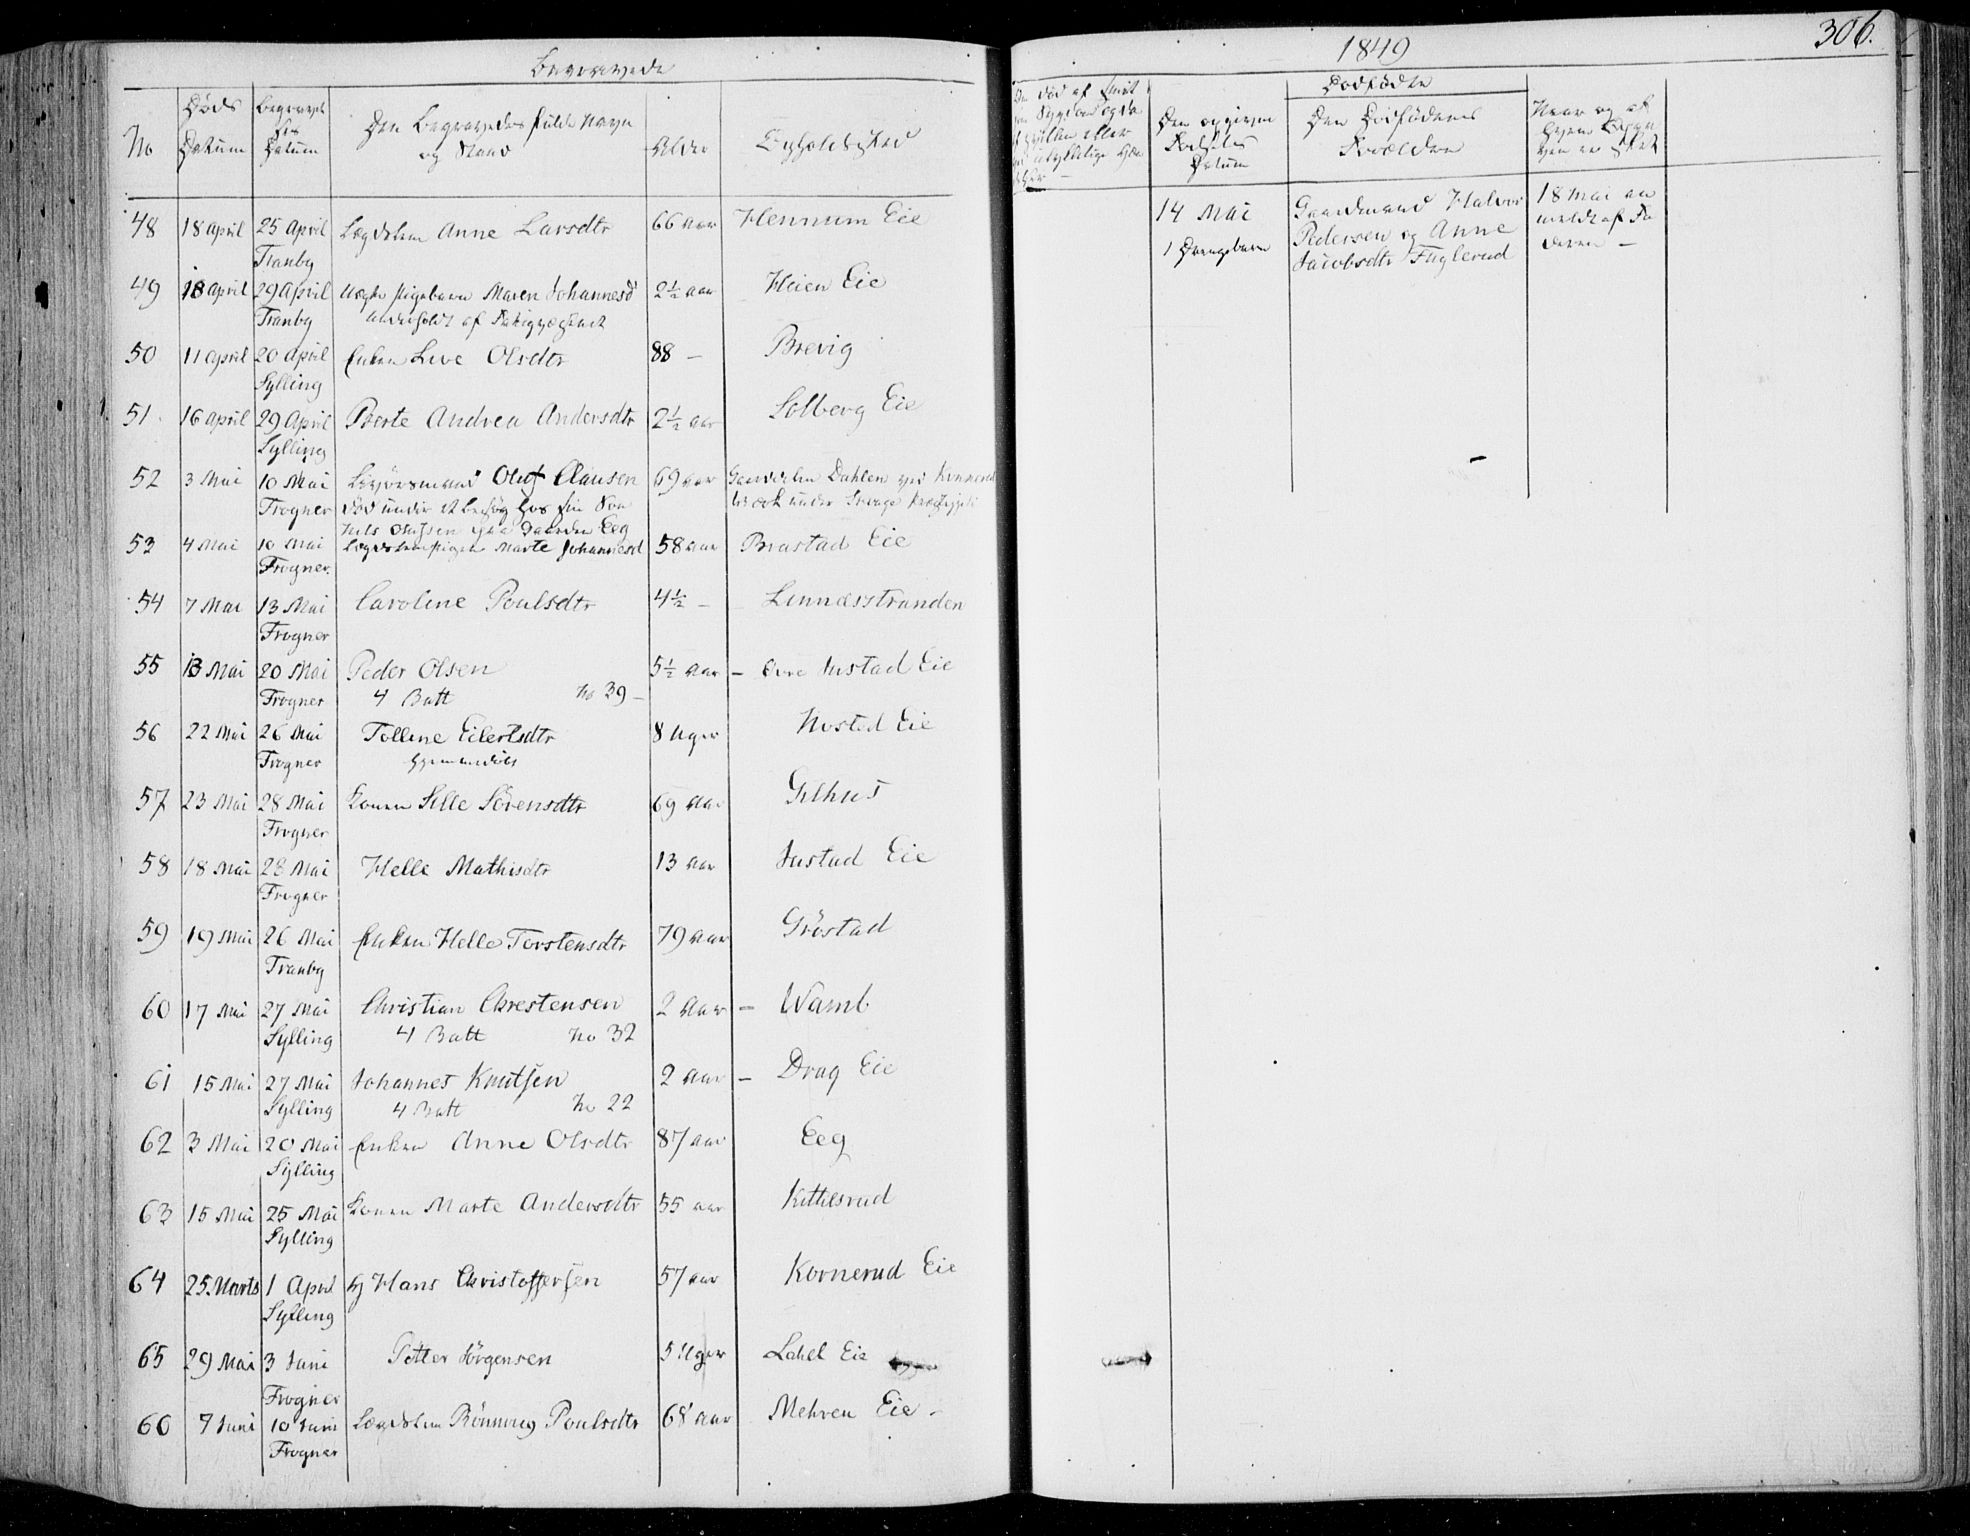 Begravede
1849
306.
No
Døds Datum
Begravelses Datum
Den Begravedes fulde Navn og Stand
Alder
Opholdssted
Dødfødte
Den opgivne Fødsels Datum
Den Dødfødtes Forældre
48 18 April 25 April Tranby Lægdslem Anne Larsdtr 66 Aar Hennum Eie
14 Mai
1 Drengebarn
Gaardmand Halvor
Pedersen og Anne
Jacobsdtr Fuglerud
18 Mai an
meldt af Fa
deren –
49 18 April 29 April Tranby uægte Pigebarn Maren Johannesd 2½ aar Heien Eie
underholdt af Fattigvæsenet
50 11 April 20 April Sylling Enken Live Olsdtr 88 – Brevig
51 16 April 29 April Sylling Berte Andrea Andersdtr 2½ aar Solberg Eie
52 3 Mai 10 Mai Frogner Oluf Clausen 69 aar Gaarden Dahlen
død under et besøg hos sin Søn
Nils Olufsen paa Gaarden Eeg
53 4 Mai 10 Mai Frogner. Marte Johannesd 58 aar Brastad Eie
54 7 Mai 13 Mai Frogner Caroline Poulsdtr 4½ – Linnæsstranden
55 13 Mai 20 Mai Frogner Peder Olsen 5½ aar – øvre Justad Eie
4 Batt No 39 –
56 22 Mai 26 Mai Frogner Tolline Eilertsdtr 8 Uger Nosted Eie
hjemmedøbt
57 23 Mai 28 Mai Frogner Konen Sille Sørensdtr 69 Aar Gilhus
58 18 Mai 28 Mai Frogner Helle Mathisdtr 13 aar Justad Eie
59 19 Mai 26 Mai Tranby Enken Helle Torstensdtr 79 aar Gröstad
60 17 Mai 27 Mai Sylling Christian Chrestensen 2 Aar – Wamb
4 Batt No 32
61 15 Mai 27 Mai Sylling Johannes Knutsen 2 Aar – Drag Eie
4 Batt No 22
62 3 Mai 20 Mai Sylling Enken Anne Olsdtr 87 aar Eeg
63 15 Mai 25 Mai Sylling Konen Marte Andersdtr 55 aar Kittilsrud
64 25 Marts 1 April Sylling Hans Christoffersen 57 aar Kornerud Eie
65 29 Mai 3 Juni Frogner Petter Jörgensen 5 Uger Lahell Eie
66 7 Juni 10 Juni Frogner Lægdslem Rönnoug Poulsdtr 68 Aar Mehren Eie –